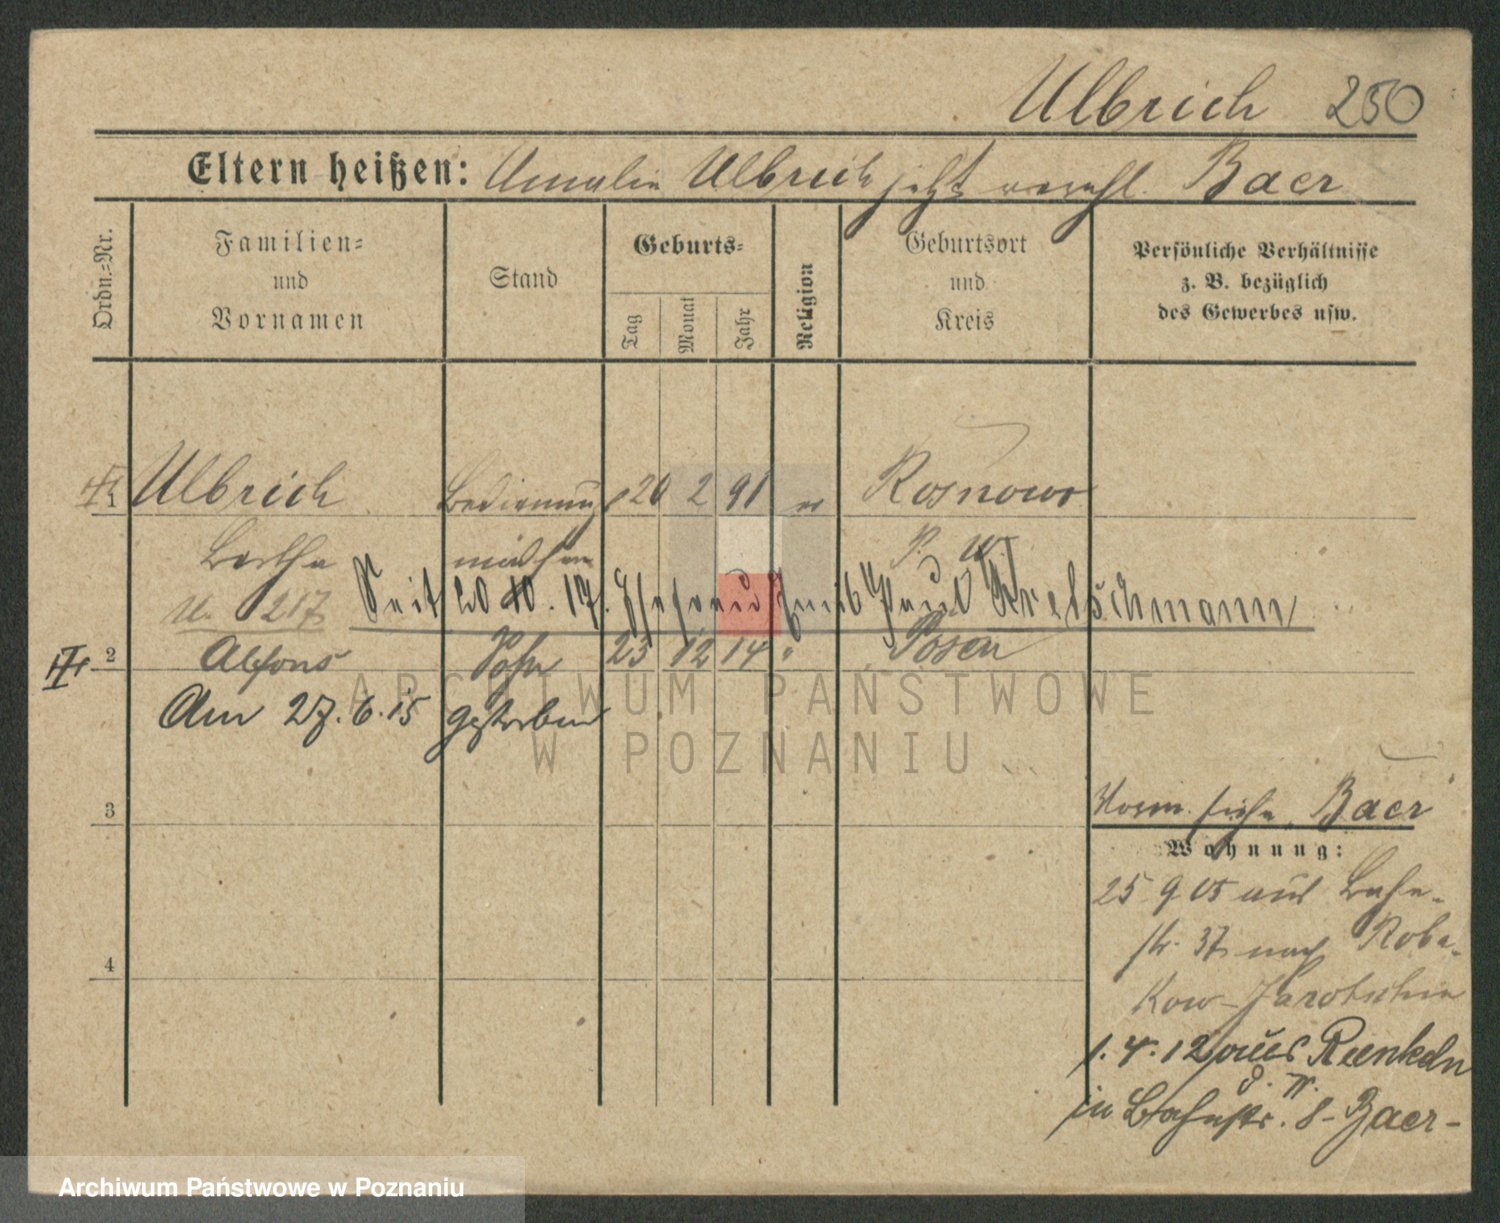 Ulbrich 250
Eltern heißen: Amalie Ulbrich jetzt verehl. Baer
Ordn.-Nr.
Familien-
und
Vornamen
Stand
Geburts-
Tag
Monat
Jahr
Religion
Geburtsort
und
Kreis
Persönliche Verhältnisse
z. B. bezüglich
des Gewerbes usw.
1 Ulbrich Bedienungs 20 2 91 ev Rosnowo
Bertha mädchen P. W.
U. 217
Seit 20 10. 17. Ehefrau Paul Kretschmann
2 Alfons Sohn 23 12 14 " Posen
Am 27. 6. 15 gestorben
3
Vorm. siehe "Baer"
Wohnung:
25 9 05 aus Bahn-
str. 37 nach Roba-
kow-Jarotschin
4
1. 4. 12 aus
in Bahnstr. 8 - Baer -
ARCHIWUM PAŃSTWOWE
W POZNANIU
Archiwum Państwowe w Poznaniu